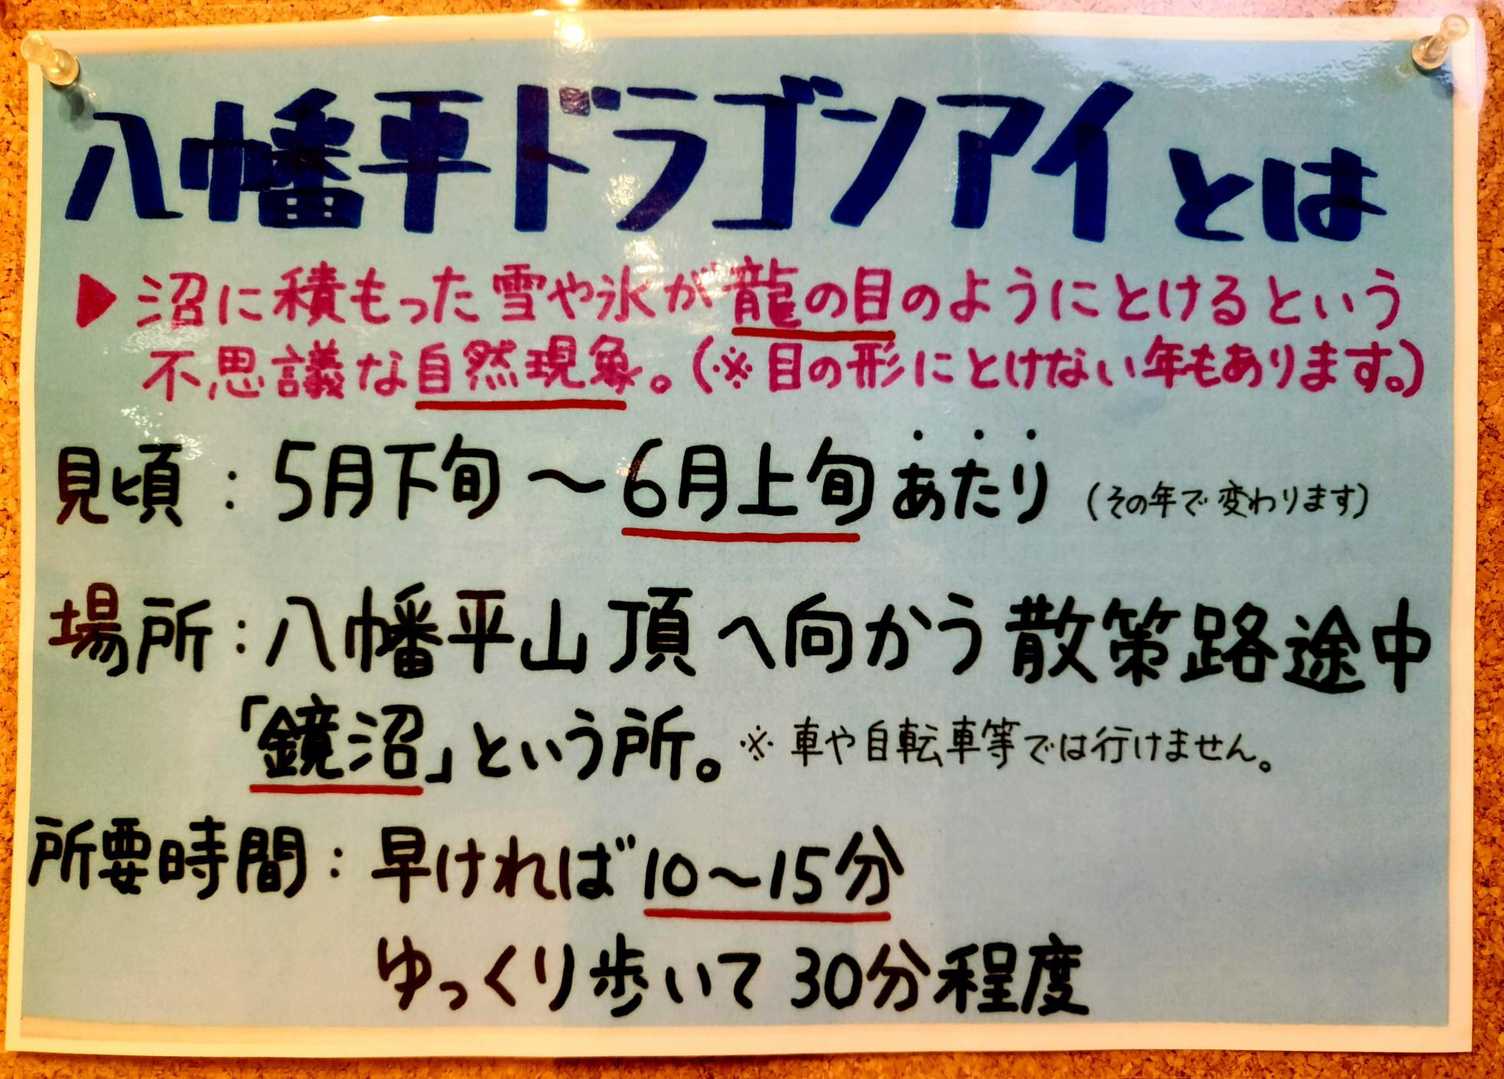 八幡平ドラゴンアイとは
▶沼に積もった雪や氷が龍の目のようにとけるという
不思議な自然現象。(※目の形にとけない年もあります。)
見頃：5月下旬〜6月上旬あたり (その年で変わります)
場所：八幡平山頂へ向かう散策路途中
「鏡沼」という所。※車や自転車等では行けません。
所要時間：早ければ10〜15分
ゆっくり歩いて30分程度